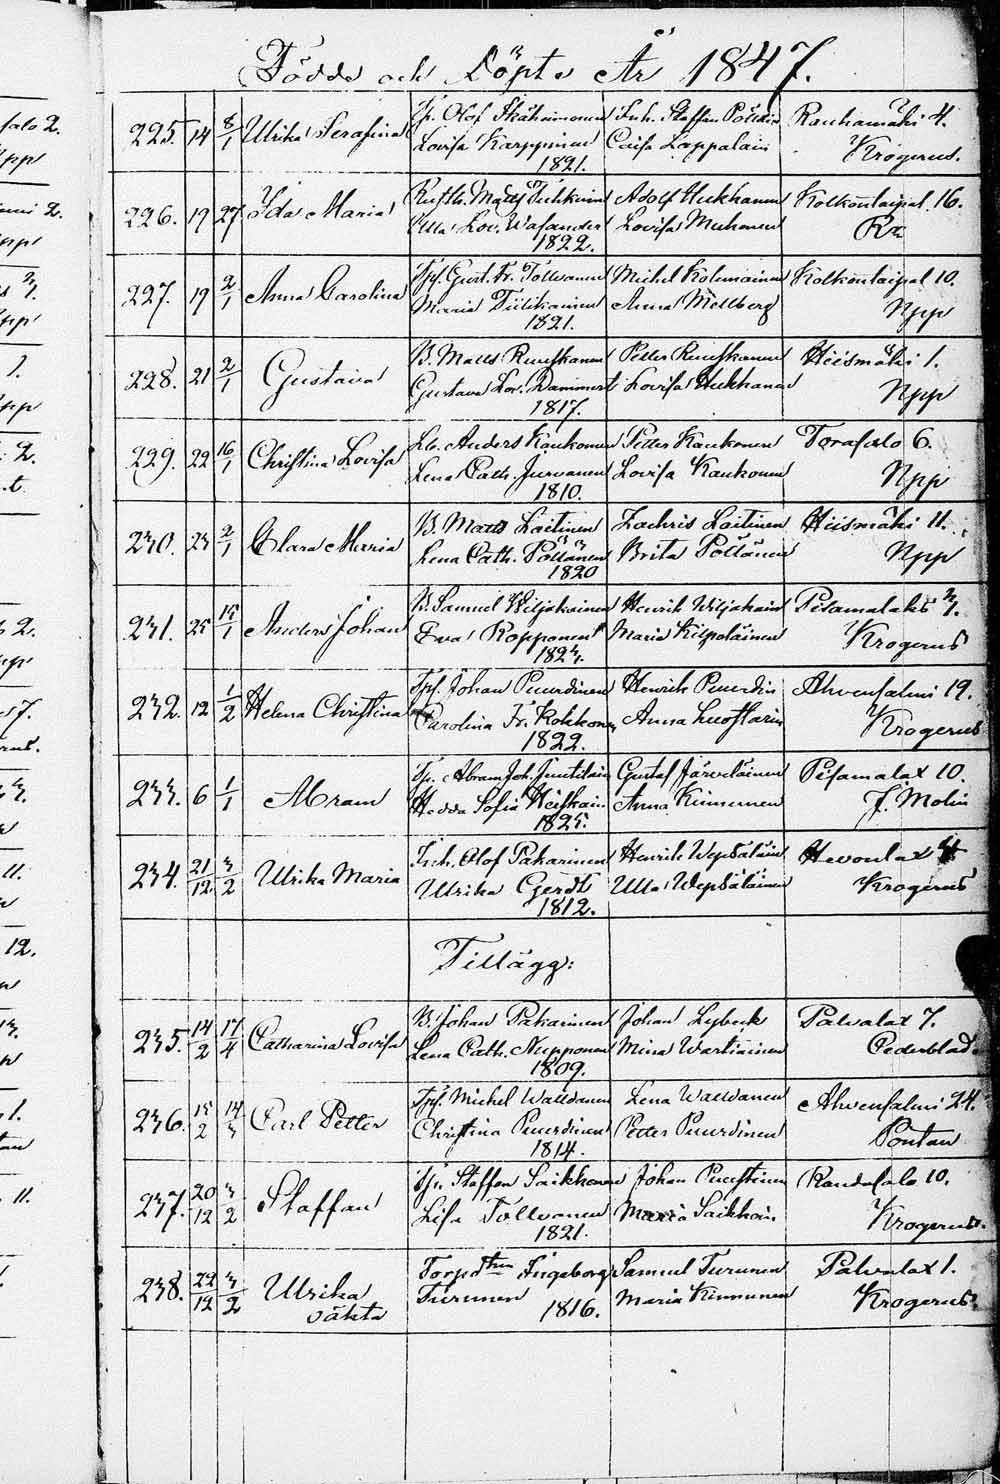 Födde och Döpte År 1847.
225. 14 8/1 Ulrika Serafina
Lovisa Karppinen
1821.
Inh. Staffan
Caisa Lappalain
Rauhamäki 4.
Krogerus.
226. 19 27 Ida Maria
Ulla Lov. Wasander
1822.
Adolf Hukkanen
Lovisa Muhonen
Kolkonlaipal. 16.
227. 19 2/1 Anna Carolina
Tpf. Gust. Fr. Tollvanen
Maria Tiilikainen
1821.
Michel Kolemainen
Anna Mellberg
Kolkonlaipal 10.
Npp
228. 21 2/1 Gustava
B. Matts Ruuskanen
Gustava Lov. Dammert
1817.
Petter Ruuskanen
Lovisa Hukkanen
Hiismäki 1.
Npp
229. 22 16/1 Christina Lovisa
Anders Kaukonen
Lena Cath. Jurvanen
1810.
Petter Kaukonen
Lovisa Kaukonen
Torasalo 6.
Npp
230. 23 2/1 Clara Maria
B. Matts Laitinen
Lena Cath. Pöllänen
1820
Zachris Laitinen
Brita Pöllänen
Hiismäki 11.
Npp
231. 25 15/1 Anders Johan
B. Samuel Wiljakainen
Eva Ropponen
1823.
Henrik Wiljakain
Maria Kilpeläinen
Pisamalaks 3.
Krogerus
232. 12 1/2 Helena Christina
Tpf. Johan Puurdinen
Carolina Fr. Kokkonen
1822.
Henrik Puurdin
Anna
Ahvensalmi 19.
Krogerus
233. 6 1/1 Abram
Tp. Abram Joh.
Hedda Sofia Heiskain
1825.
Gustaf Järveläinen
Anna Kinnunen
Pisamalax 10.
J. Molin
234. 21/12 3/2 Ulrika Maria
Inh. Olof Pakarinen
Ulrika Gerdt
1812.
Henrik Wepsäläin
Ulla Wepsäläinen
Hevonlax 4
Krogerus
Tillägg:
235. 14/2 17/4 Catharina Lovisa
B. Johan Pakarinen
Lena Cath. Nupponen
1809.
Johan Lybeck
Mina Wartiainen
Palvalax 7.
Cederblad.
236. 15/2 14/3 Carl Petter
Tpf. Michel Wallvanen
Christina Puurdinen
1814.
Lena Wallvanen
Petter Puurdinen
Ahvensalmi 24.
Pontan
237. 20/12 3/2 Staffan
Staffan Saikkonen
Lisa Tollvanen
1821.
Johan Puustinen
Maria Saikkoin
Randasalo 10.
Krogerus.
238. 22/12 3/2 Ulrika
oäkta
Torpdtrn Ingeborg
Turunen
1816.
Samuel Turunen
Maria Kinnunen
Palvalax 1.
Krogerus.